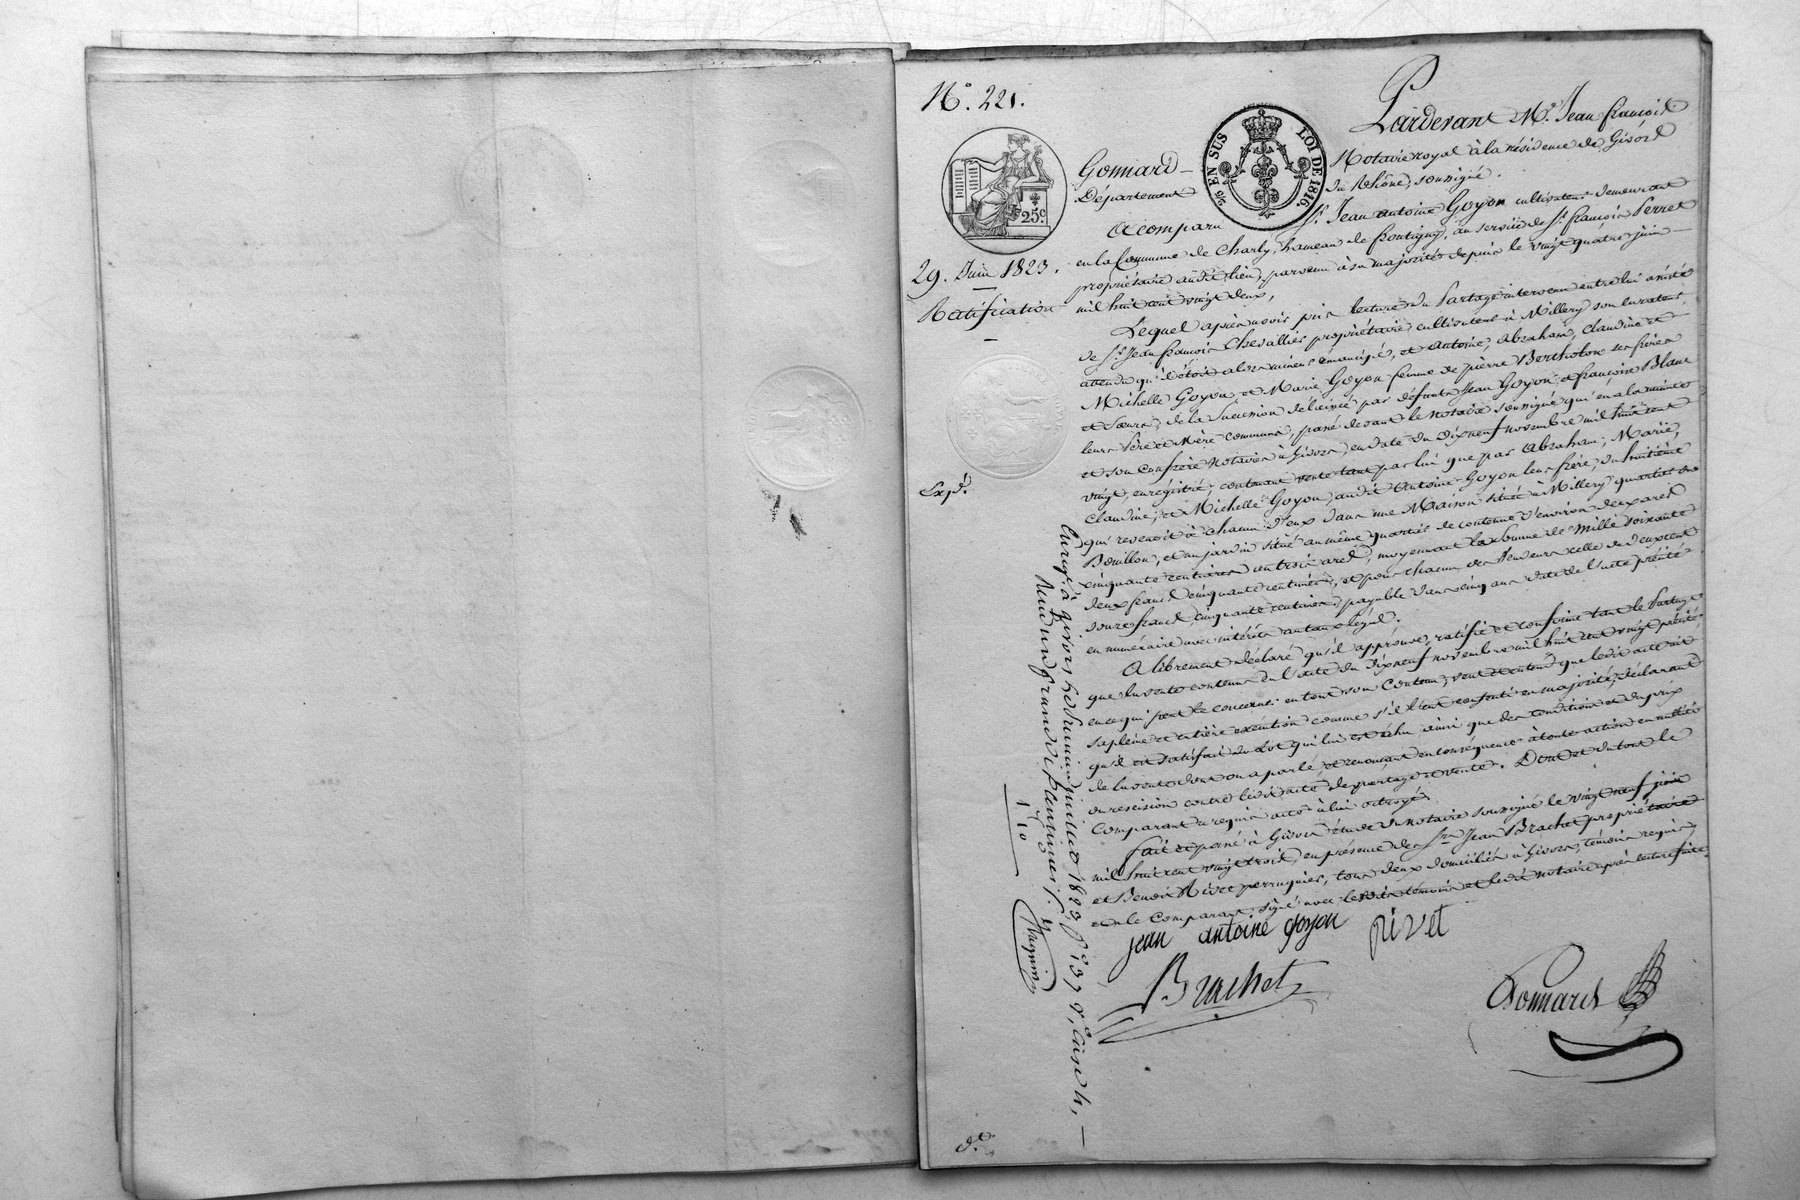 N.° 221.
25 c.
29. Juin 1823.
Ratification
Expé.
2/5 EN SUS LOI DE 1816.
Pardevant M.e Jean françois
Gonnard Notaire royal à la résidence de Givors
Département du Rhône, soussigné.
A comparu S.r Jean antoine Goyon cultivateur demeurant
en la Commune de Charly, hameau de frontigny, au service de S.r françois Perret
propriétaire audit lieu, parvenu à sa majorité depuis le vingt quatre juin
mil huit cent vingt deux,
Lequel après avoir pris lecture du Partage intervenu entre lui assisté
de S.r Jean françois Chevallier propriétaire cultivateur à Millery son curateur,
attendu qu'il étoit alors mineur émancipé, et Antoine, Abraham, Claudine et
Michelle Goyon, et Marie Goyon femme de pierre Bertholon ses frères
et Sœurs, de la Succession délaissée par défunts Jean Goyon et françoise Blanc
leurs Père et Mère communs, passé devant le notaire soussigné qui en a la minute
et son confrère Notaires à Givors, en date du dix neuf novembre mil huit cent
vingt, enregistré, contenant vente tant par lui que par Abraham, Marie,
Claudine, et Michelle Goyon, audit Antoine Goyon leur frère, du huitième
qui revenoit à chacun d'eux dans une Maison située à Millery quartier du
Bouillon, et un jardin situé au même quartier de contenue d'environ deux ares
cinquante centiares ou trois ares, moyennant la somme de Mille soixante
deux francs cinquante centimes, et pour chacun des Vendeurs celle de deux cent
douze francs cinquante centimes, payable dans cinq ans date de l'acte précité
en numéraire avec intérêts au taux légal.
A librement déclaré qu'il approuve, ratifie et confirme tant le Partage
que la vente contenus en l'acte du dix neuf novembre mil huit cent vingt précité
en ce qui peut le concerner en tout son Contenu, veut et entend que ledit acte ait
sa pleine et entière exécution comme s'il l'eut consenti en majorité, déclarant
qu'il est satisfait du Lot qui lui est échu ainsi que des conditions et du prix
de la vente dont on a parlé, et renonçant en conséquence à toute action en nullité
ou rescision contre lesdits acte de partage et vente. Dont et du tout le
Comparant a requis acte à lui octroyé.
fait et passé à Givors étude du notaire soussigné le vingt neuf juin
mil huit cent vingt trois, en présence de S.rs Jean Brachet propriétaire
et Benoit Rivet perruquier, tous deux domiciliés à Givors, témoins requis,
et a le Comparant signé avec lesdits témoins et ledit notaire après lecture faite.
jean antoine goyon rivet
Brachet Gonnard
Enreg.é à Givors juillet 1823, f.° 137 v.° Case 4,
Reçu un franc dix centimes.
1 10